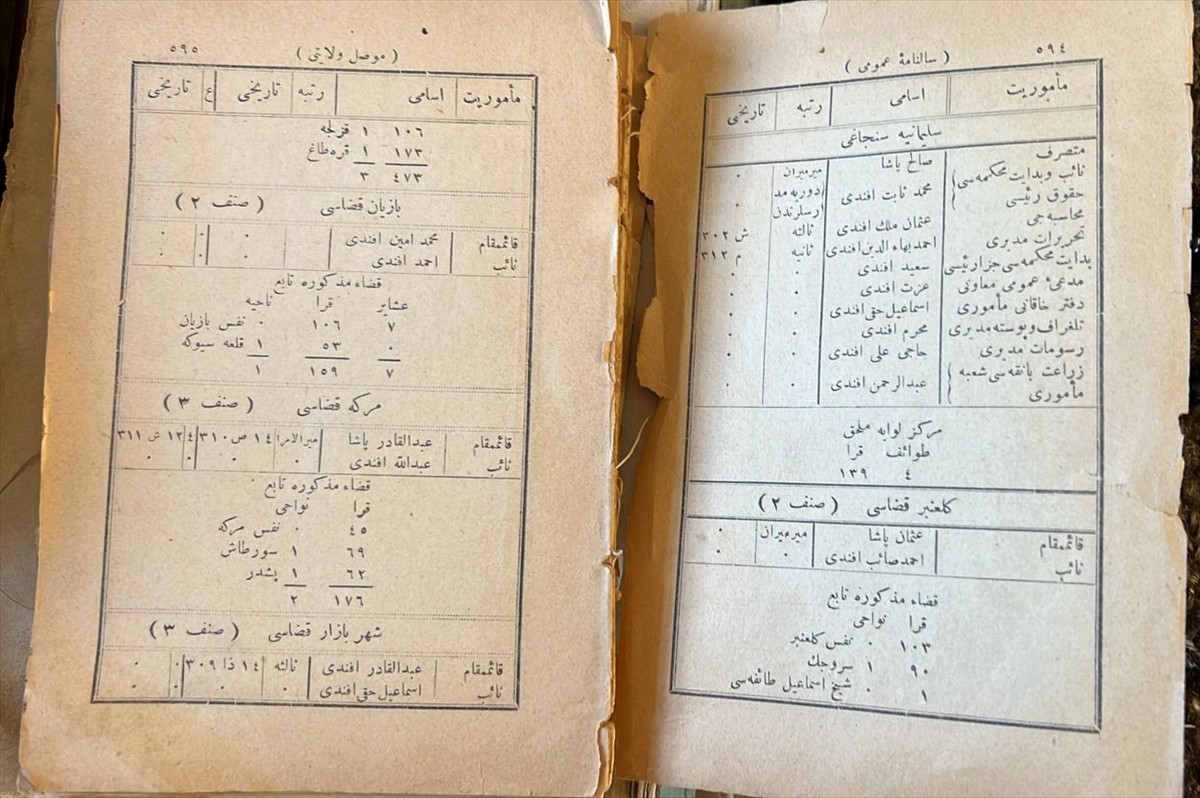 ٥٩٤ ( سالنامهٔ عمومی )
مأموریت اسامی رتبه تاریخی
سلیمانیه سنجاغی
متصرف صالح پاشا میرمیران ٠
نائب وبدایت محکمه‌سی حقوق رئیسی محمد ثابت افندی دوریه مد رسلرندن ٠
محاسبه‌جی عثمان ملك افندی ثالثه ش ٣٠٢
تحریرات مدیری احمد بهاء الدین افندی ثانیه م ٣١٢
بدایت محکمه‌سی جزا رئیسی سعید افندی ٠ ٠
مدعیٔ عمومی معاونی عزت افندی ٠ ٠
دفتر خاقانی مأموری اسماعیل حقی افندی ٠ ٠
تلغراف وپوسته مدیری محرم افندی ٠ ٠
رسومات مدیری حاجی علی افندی ٠ ٠
زراعت بانقه‌سی شعبه مأموری عبدالرحمن افندی ٠ ٠
مرکز لوایه ملحق
طوائف قرا
٤ ١٣٩
کلعنبر قضاسی ( صنف ٢ )
قائممقام عثمان پاشا میرمیران ٠
نائب احمد صائب افندی ٠ ٠
قضاء مذکوره تابع
قرا نواحی
١٠٣ ٠ نفس کلعنبر
٩٠ ١ سروجك
١ ٠ شیخ اسماعیل طائفه‌سی
( موصل ولاتی ) ٥٩٥
مأموریت اسامی رتبه تاریخی ع تاریخی
١٠٦ ١ قزلجه
١٧٣ ١ قره‌طاغ
٤٧٣ ٣
بازیان قضاسی ( صنف ٢ )
قائممقام محمد امین افندی ٠ ٠ ٠
نائب احمد افندی ٠ ٠ ٠
قضاء مذکوره تابع
عشایر قرا ناحیه
٧ ١٠٦ ٠ نفس بازیان
٠ ٥٣ ١ قلعه سیوکه
٧ ١٥٩ ١
مرکه قضاسی ( صنف ٣ )
قائممقام عبدالقادر پاشا میرالامرا ١٤ ص ٣١٠ ٤ ١٢ ش ٣١١
نائب عبدالله افندی ٠ ٠ ٠ ٠
قضاء مذکوره تابع
قرا نواحی
٤٥ ٠ نفس مرکه
٦٩ ١ سورطاش
٦٢ ١ پشدر
١٧٦ ٢
شهر بازار قضاسی ( صنف ٣ )
قائممقام عبدالقادر افندی ثالثه ١٤ ذا ٣٠٩ ٠ ٠
نائب اسماعیل حقی افندی ٠ ٠ ٠ ٠